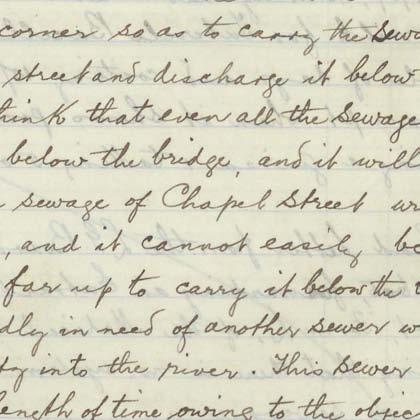 corner so as to carry the Sewa
street and discharge it below
think that even all the Sewage
below the bridge, and it will
sewage of Chapel Street
, and it cannot easily be
far up to carry it below the
dly in need of another sewer w
ty into the river. This sewer
length of time owing to the objec